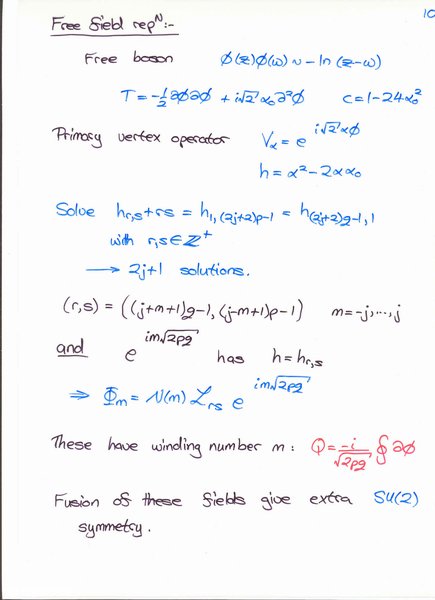 10
Free field repᴺ:-
Free boson φ(z)φ(w) ~ -ln(z-w)
T = -½∂φ∂φ + i√2α₀∂²φ c = 1-24α₀²
Primary vertex operator V_α = e^{i√2αφ}
h = α² - 2αα₀
Solve h_{r,s}+rs = h_{1,(2j+2)p-1} = h_{(2j+2)q-1,1}
with r,s ∈ ℤ⁺
→ 2j+1 solutions.
(r,s) = ((j+m+1)q-1, (j-m+1)p-1) m=-j,...,j
and e^{im√2pq} has h = h_{r,s}
⇒ Φ_m = N(m) ℒ_{rs} e^{im√2pq}
These have winding number m: Q = -i/√2pq ∮∂φ
Fusion of these fields give extra SU(2)
symmetry.